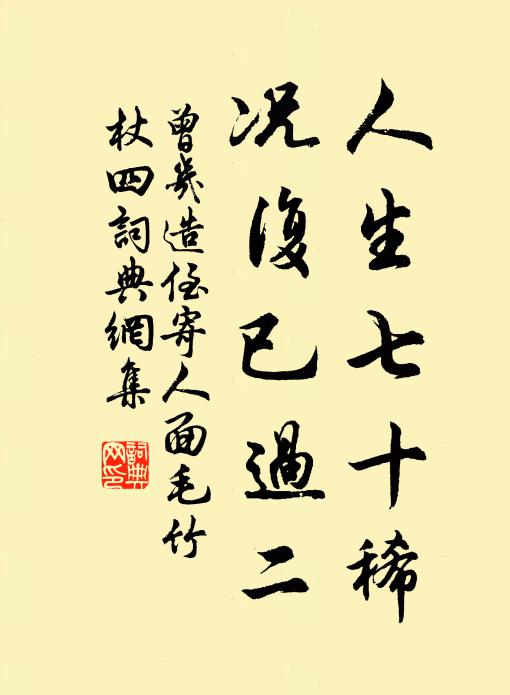 人生七十稀
况復已過二
曾幾造侄寄人面毛竹
杖四詞典網集
詞典
网印